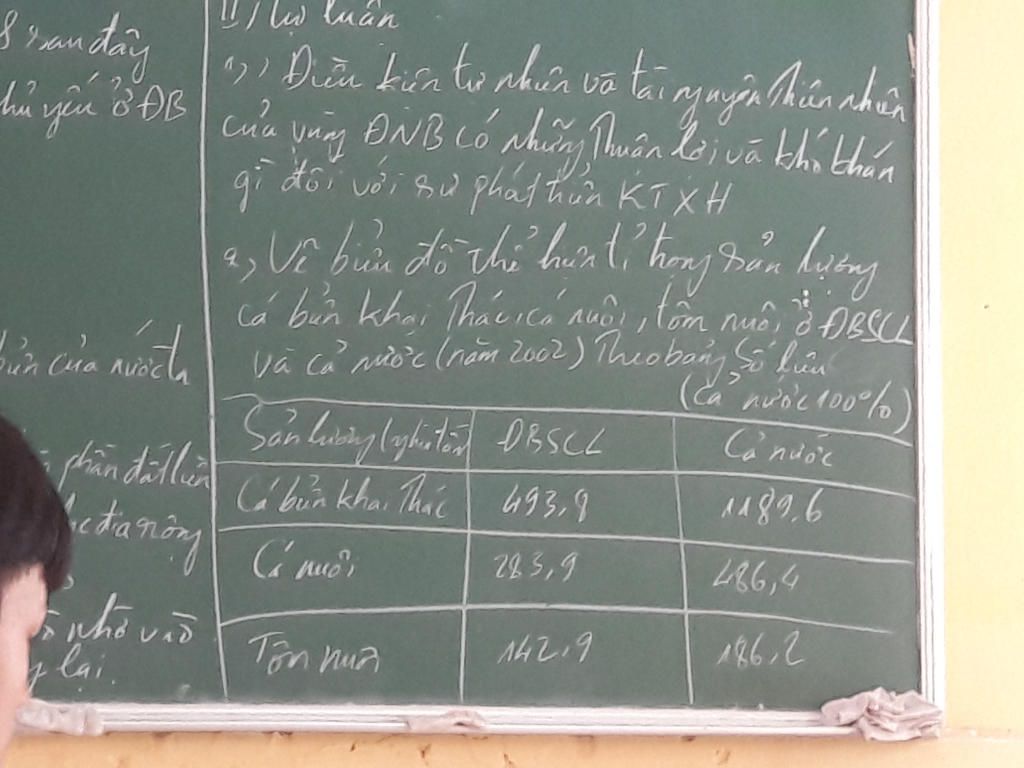 sau đây
chủ yếu ở ĐB
của nước ta
phần đất liền
địa rộng
nhờ vào
lại.
II, Tự luận
1, Điều kiện tự nhiên và tài nguyên thiên nhiên
của vùng ĐNB có những thuận lợi và khó khăn
gì đối với sự phát triển KTXH
2, Vẽ biểu đồ thể hiện tỉ trọng sản lượng
cá biển khai thác, cá nuôi, tôm nuôi ở ĐBSCL
và cả nước (năm 2002) Theo bảng số liệu
(cả nước 100%)
Sản lượng (nghìn tấn) ĐBSCL Cả nước
Cá biển khai thác 493,8 1189,6
Cá nuôi 283,9 486,4
Tôm nuôi 142,9 186,2